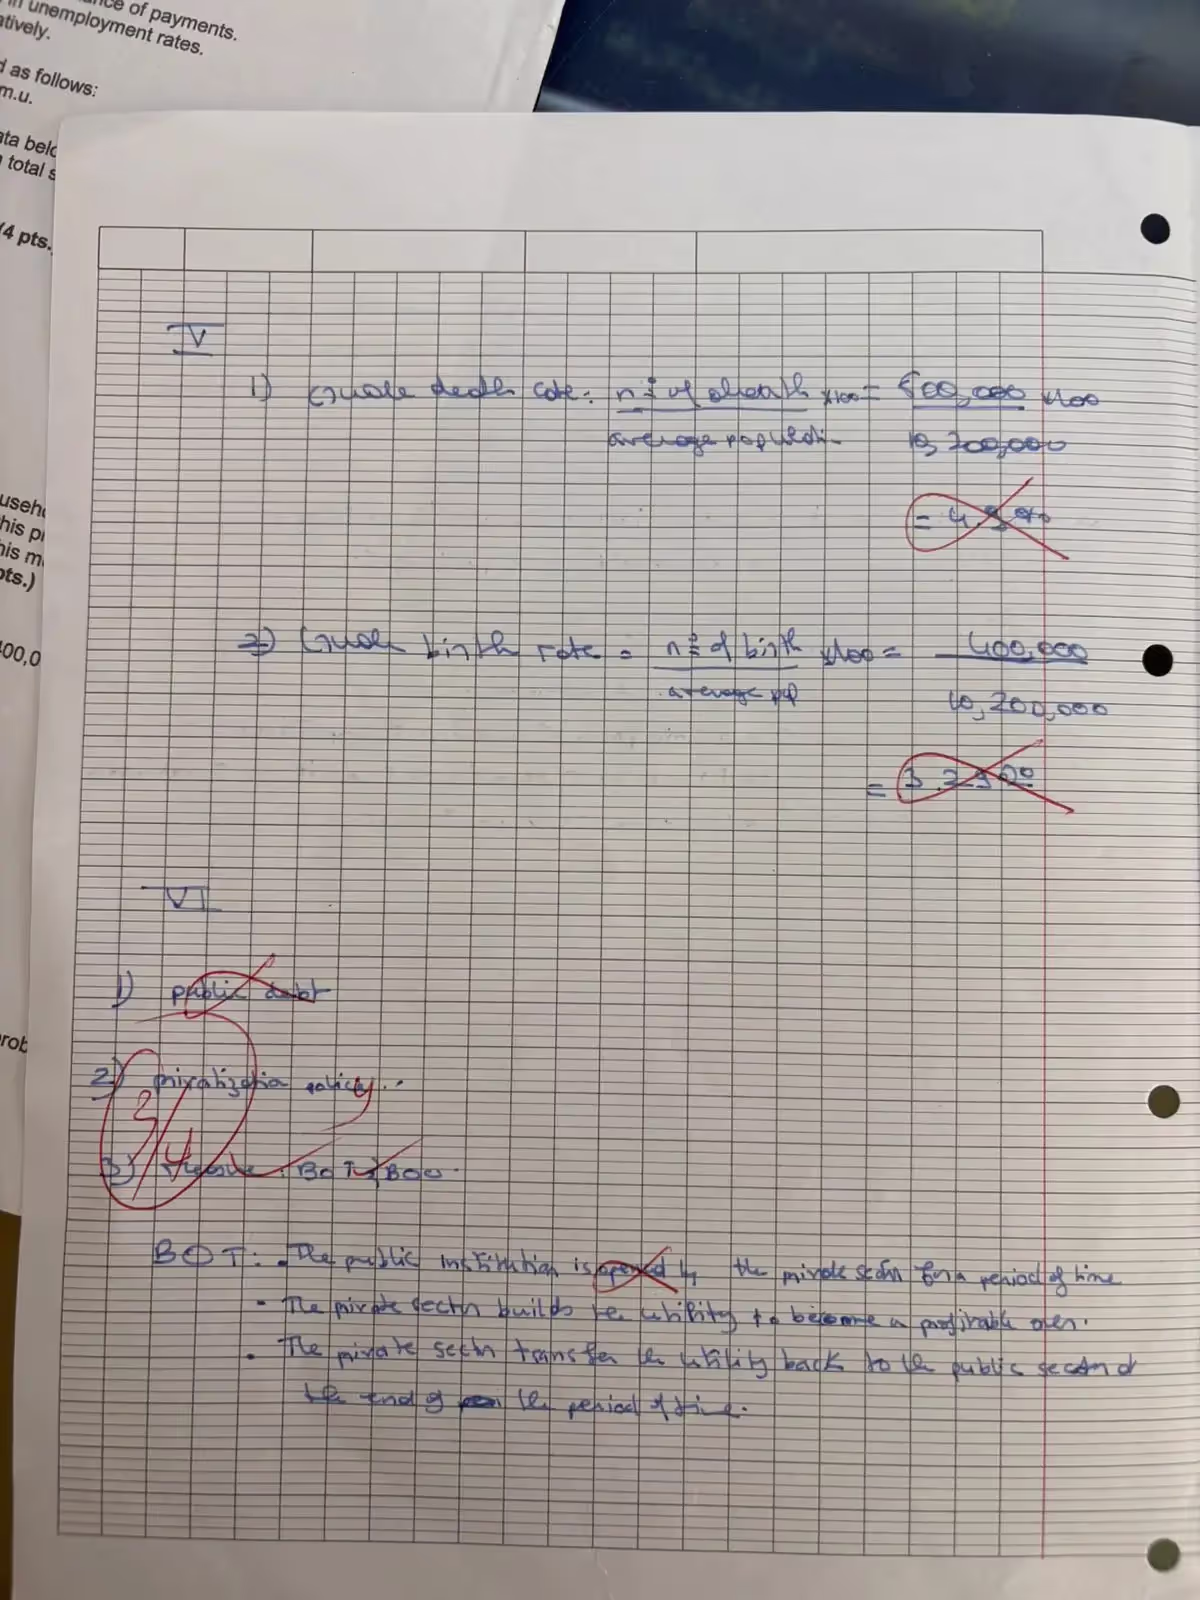 nce of payments.
in unemployment rates.
atively.
d as follows:
m.u.
ata belo
total s
(4 pts.
useho
his p
his m
pts.)
00,0
rob
V
1) Crude death rate: nº of death x100 = 500,000 x100
average populati. 10,200,000
= 4.9 %
2) Crude birth rate = nº of birth x100 = 400,000
average pop 10,200,000
=
VI
1) public debt
2) privatization policy.
3/4
3) BOT BOO.
BOT: . The public institution is by the private sector for a period of time
. The private sector builds the utility to become a profitable
. The private sector transfer the utility back to the public
the end of the period of time.